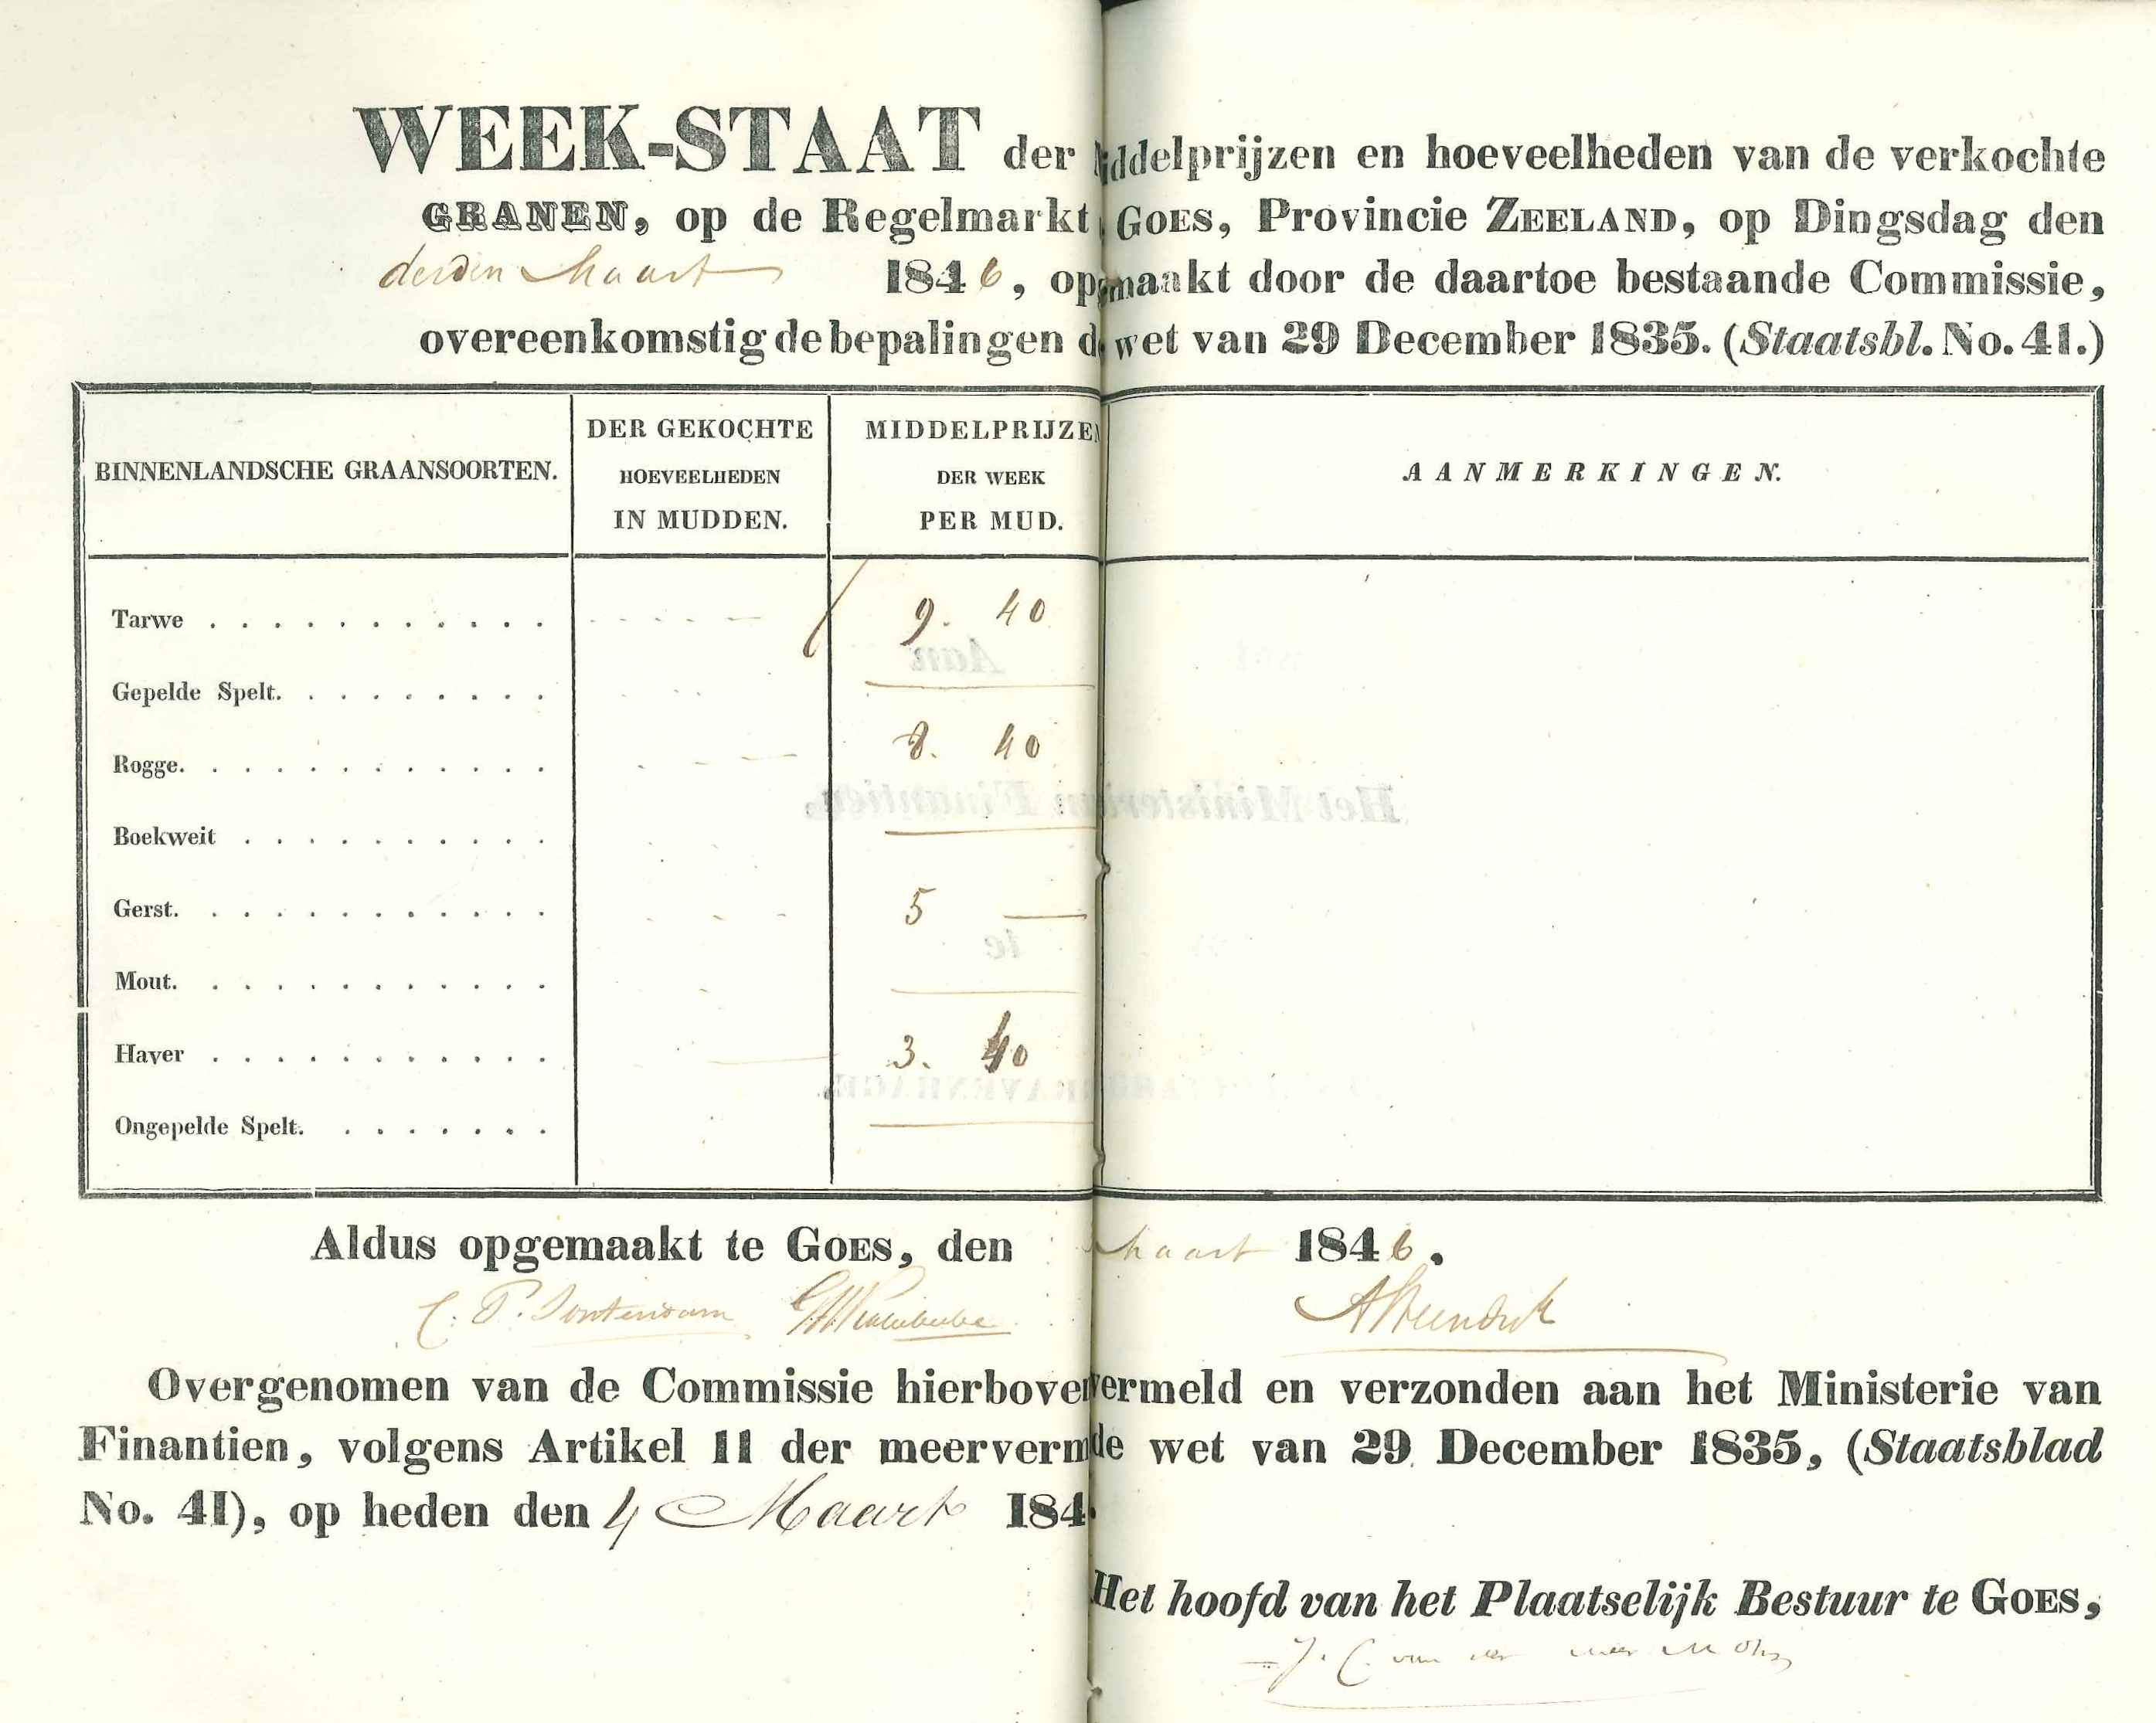 WEEK-STAAT der Middelprijzen en hoeveelheden van de verkochte
GRANEN, op de Regelmarkt GOES, Provincie ZEELAND, op Dingsdag den
derden Maart 1846, opgemaakt door de daartoe bestaande Commissie,
overeenkomstig de bepalingen d wet van 29 December 1835. (Staatsbl. No. 41.)
BINNENLANDSCHE GRAANSOORTEN.
DER GEKOCHTE
HOEVEELHEDEN
IN MUDDEN.
MIDDELPRIJZEN
DER WEEK
PER MUD.
AANMERKINGEN.
Tarwe . . . . . . . . . . . 9. 40
Gepelde Spelt. . . . . . . . . —
Rogge. . . . . . . . . . . . 8. 40
Boekweit . . . . . . . . . . —
Gerst. . . . . . . . . . . . 5 —
Mout. . . . . . . . . . . . —
Haver . . . . . . . . . . . 3. 40
Ongepelde Spelt. . . . . . . . —
Aldus opgemaakt te GOES, den Maart 1846.
C. P.
Overgenomen van de Commissie hierboven vermeld en verzonden aan het Ministerie van
Finantien, volgens Artikel 11 der meervermde wet van 29 December 1835, (Staatsblad
No. 41), op heden den 4 Maart 184
Het hoofd van het Plaatselijk Bestuur te GOES,
J. C. van der